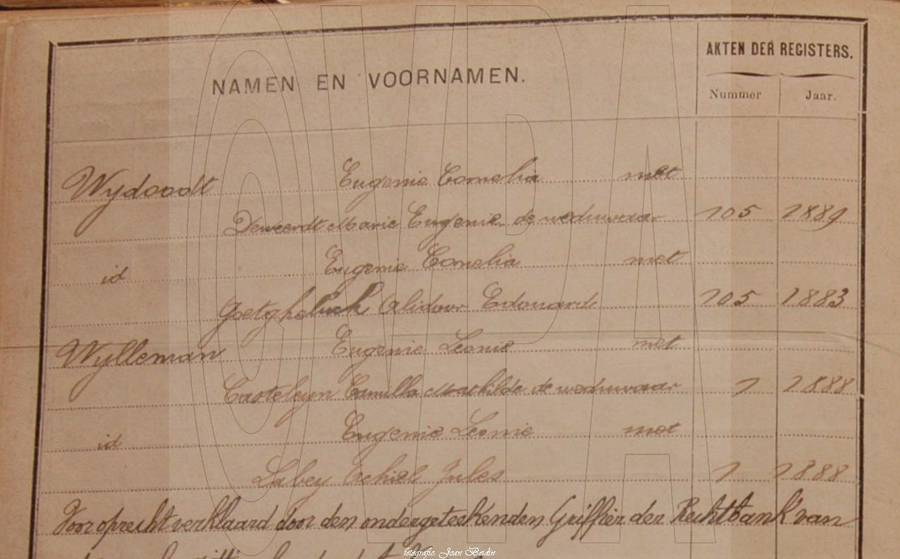 NAMEN EN VOORNAMEN. AKTEN DER REGISTERS.
Nummer Jaar.
Wydoodt Eugenie Cornelia met
Deweerdt Marie Eugenie de weduwaar 105 1889
id Eugenie Cornelia met
Goetgheluck Alidoor Edouard 105 1883
Wylleman Eugenie Leonie met
Casteleyn Camilla Mathilde de weduwaar 1 1888
id Eugenie Leonie met
Labey Jules 1 1888
Voor oprecht verklaard door den ondergeteekenden Griffier der Rechtbank van
fotografie Jean